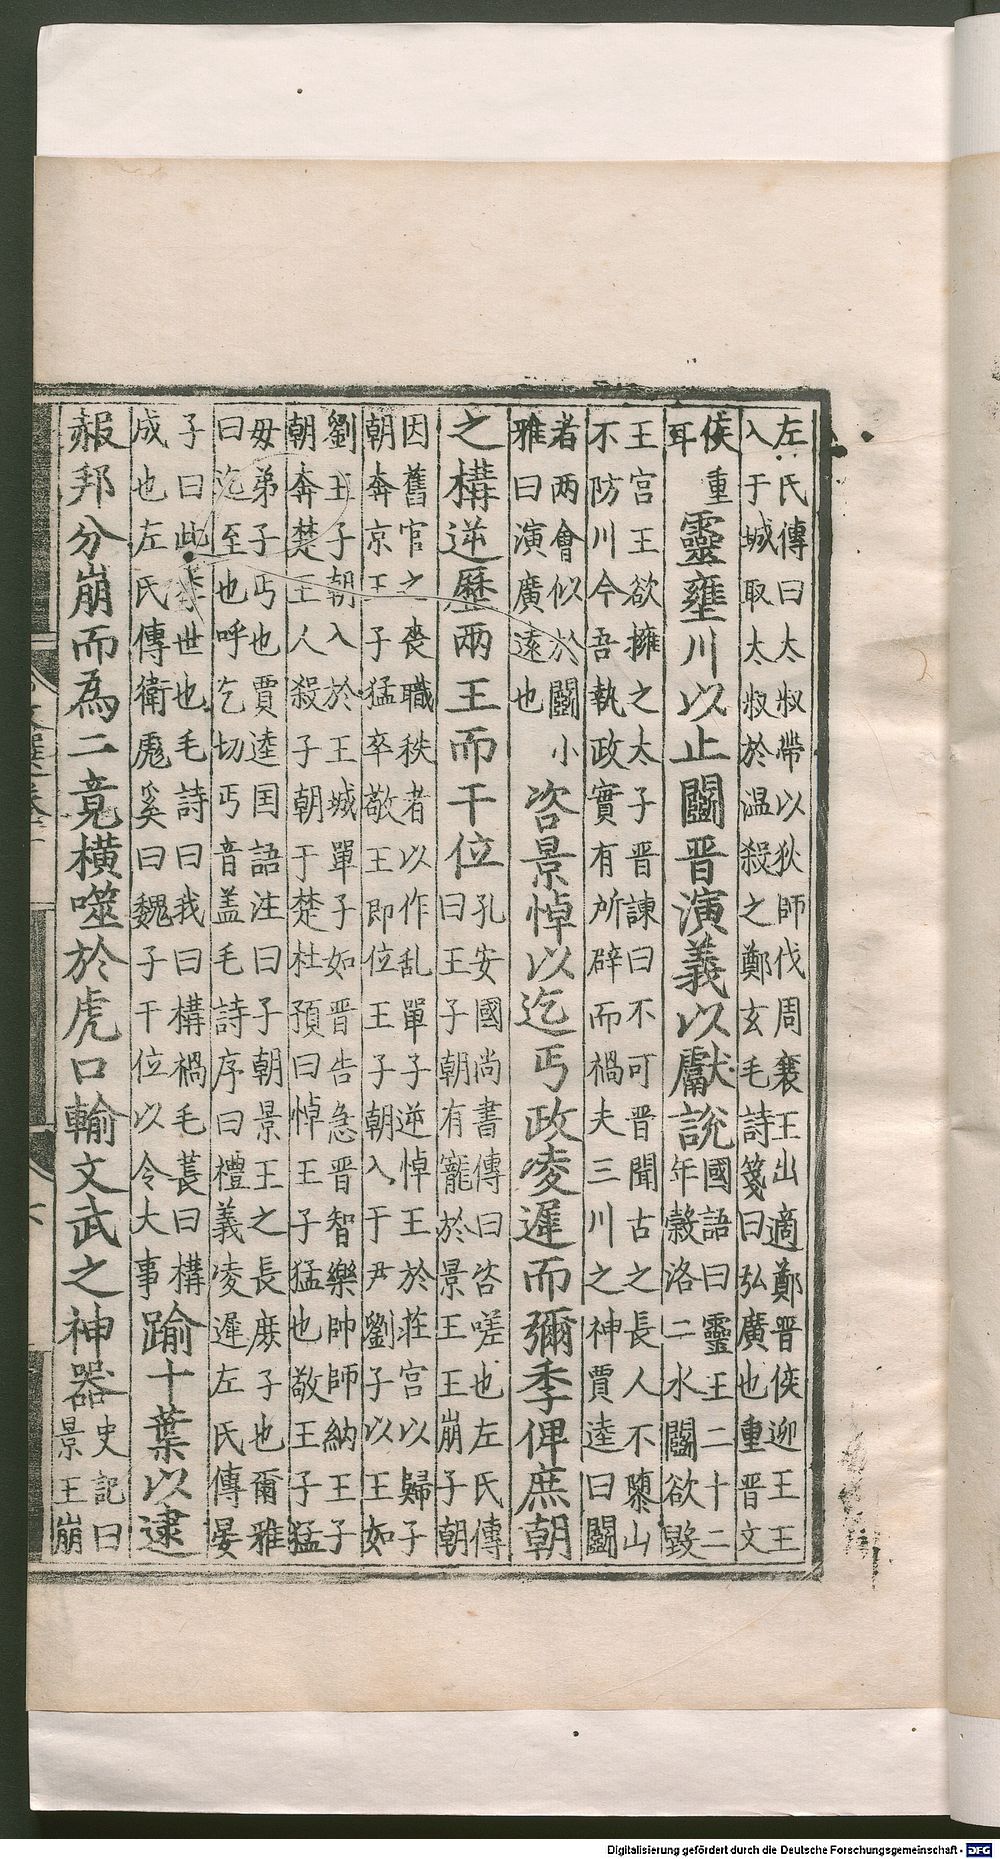 左氏傳曰太叔帶以狄師伐周襄王出適鄭晋侯迎王王
入于城取太叔於温殺之鄭玄毛詩箋曰弘廣也重晋文
侯重
耳
靈壅川以止鬬晋演義以獻說
國語曰靈王二十二
年榖洛二水鬬欲毀
王宮王欲擁之太子晋諫曰不可晋聞古之長人不隳山
不防川今吾執政實有所辟而禍夫三川之神賈逵曰鬬
者兩會似於鬬小
雅曰演廣遠也
咨景悼以迄丐政凌遲而彌季俾庶朝
之構逆歷兩王而干位
孔安國尚書傳曰咨嗟也左氏傳
曰王子朝有寵於景王王崩子朝
因舊官之喪職秩者以作乱單子逆悼王於莊宮以歸子
朝奔京王子猛卒敬王即位王子朝入于尹劉子以王如
劉王子朝入於王城單子如晋告急晋智樂帥師納王子
朝奔楚王人殺子朝于楚杜預曰悼王子猛也敬王子猛
母弟子丐也賈逵国語注曰子朝景王之長庶子也爾雅
曰迄至也呼乞切丐音盖毛詩序曰禮義凌遲左氏傳晏
子曰此季世也毛詩曰我曰構禍毛萇曰構
成也左氏傳衛彪奚曰魏子干位以令大事
踰十葉以逮
赧邦分崩而為二竟横噬於虎口輸文武之神器
史記曰
景王崩
Digitalisierung gefördert durch die Deutsche Forschungsgemeinschaft - DFG